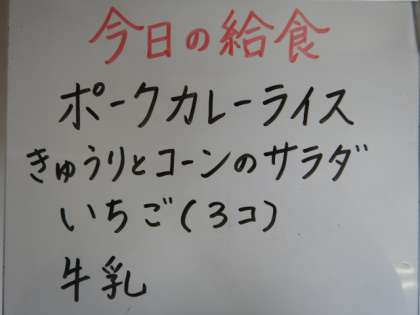 今日の給食
ポークカレーライス
きゅうりとコーンのサラダ
いちご(3コ)
牛乳